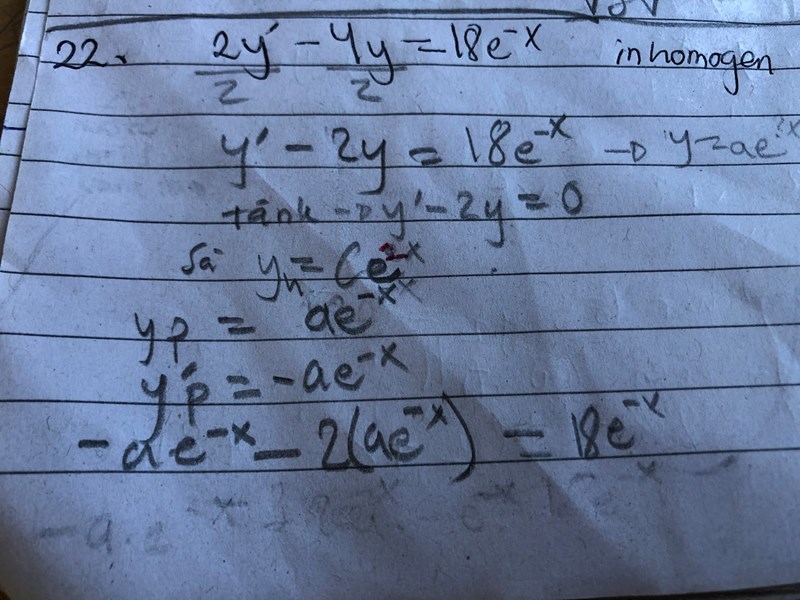 22. 2y'/2 - 4y/2 = 18e^-x inhomogen
y' - 2y = 18e^-x → y=ae^2x
tänk → y' - 2y = 0
så y_h = Ce^2x
yp = ae^-x
y'p = -ae^-x
-ae^-x - 2(ae^-x) = 18e^-x